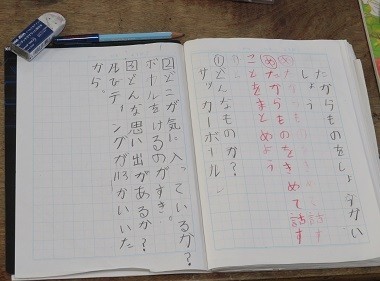 たからものをしょうかい
しよう
めたからものをきめて話す
ことをまとめよう
①どんなものか?
サッカーボール
②どこが気に入っているか?
ボールをけるのがすき。
③どんな思い出があるか?
から。